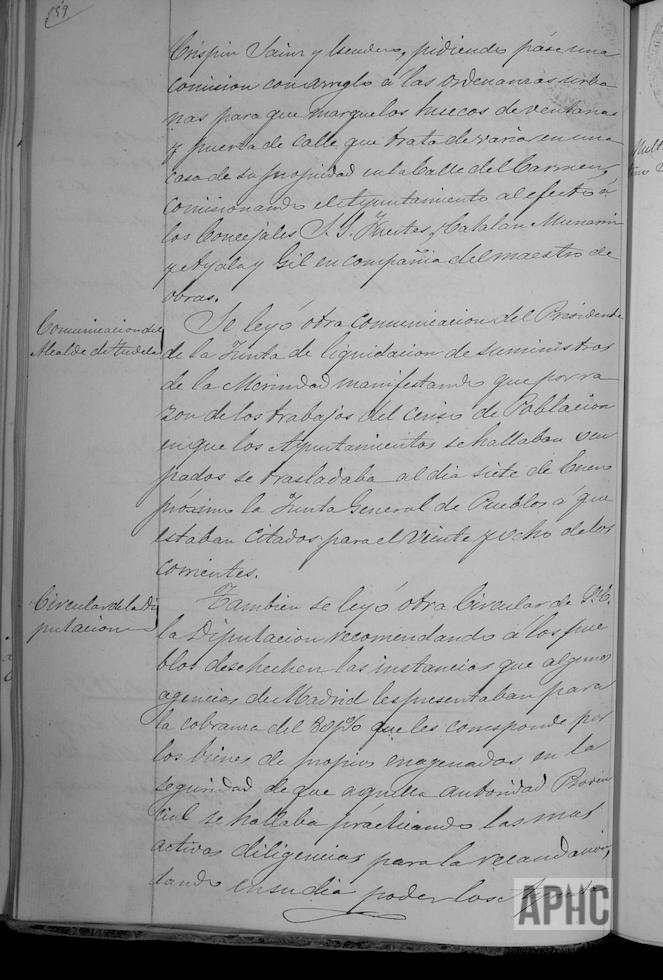 Crispin Sainz y Escudero, pidiendo pase una
comision con arreglo á las ordenanzas urba
nas para que marque los huecos de ventanas
y puerta de calle que trata de variar en una
casa de su propiedad en la Calle del Carmen,
comisionando el Ayuntamiento al efecto á
los Concejales S. S. Fuertes, y Catalan Munarriz
y Ayala y Gil en compañia del maestro de
obras.
Comunicacion del
Alcalde de Tudela
Se leyó otra comunicacion del Presidente
de la Junta de liquidacion de suministros
de la Merindad manifestando que por ra
zon de los trabajos del censo de Poblacion
en que los Ayuntamientos se hallaban ocu
pados se trasladaba al dia siete de Enero
próximo la Junta General de Pueblos á que
estaban citados para el veinte y ocho de los
corrientes.
Circular de la Di
putacion
Tambien se leyó otra Circular de
la Diputacion recomendando á los pue
blos desechen las instancias que algunas
agencias de Madrid les presentaban para
la cobranza del 80 p% que les corresponde por
los bienes de propios enagenados en la
seguridad de que aquella autoridad Provin
cial se hallaba practicando las mas
activas diligencias para la recaudacion,
dando en su dia poder los
APHC